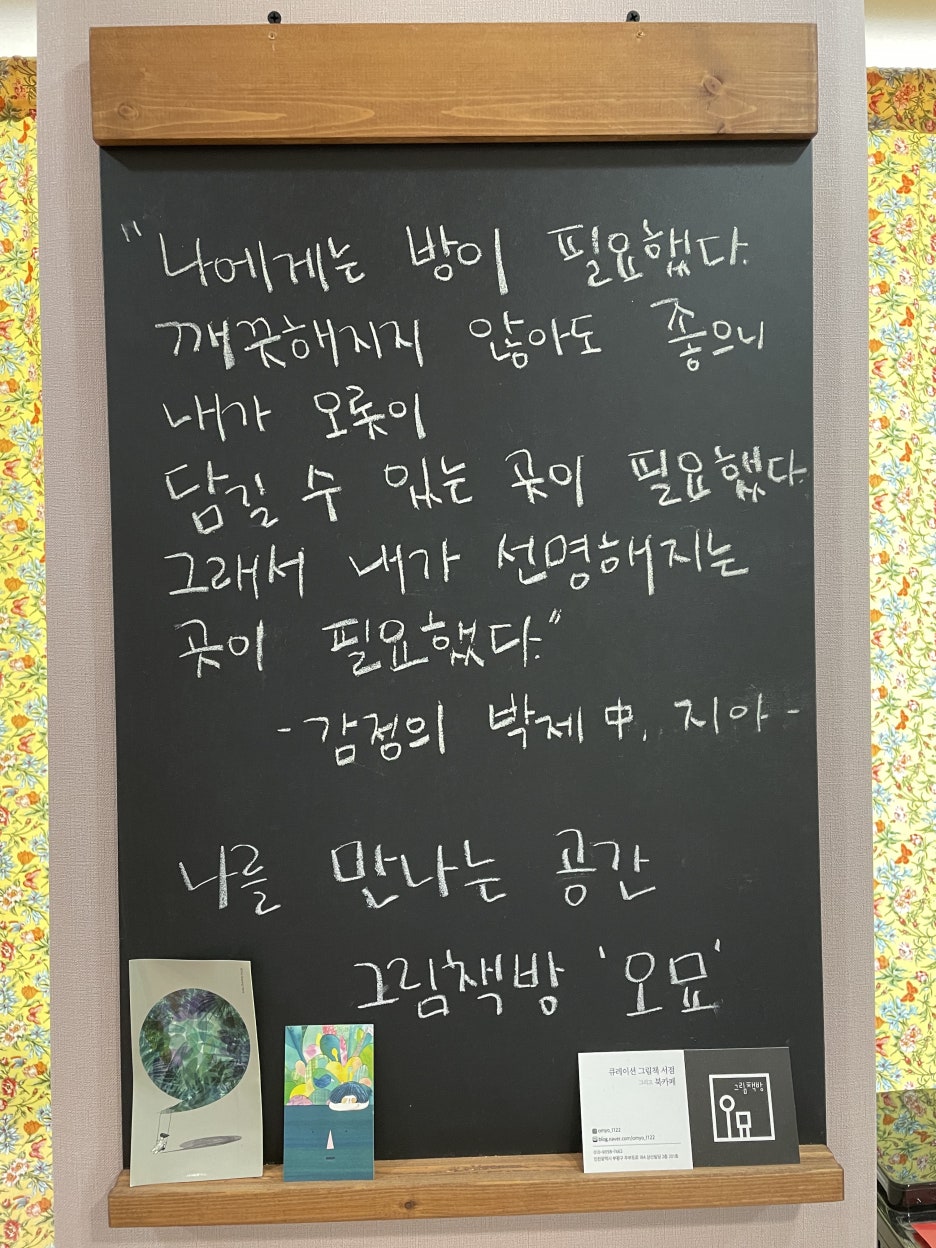 "나에게는 방이 필요했다.
깨끗해지지 않아도 좋으니
내가 오롯이
담길 수 있는 곳이 필요했다.
그래서 내가 선명해지는
곳이 필요했다."
- 감정의 박제 中, 지아 -
나를 만나는 공간
그림책방 '오묘'
큐레이션 그림책 서점
그리고 북카페
omyo_1122
blog.naver.com/omyo_1122
그림책방